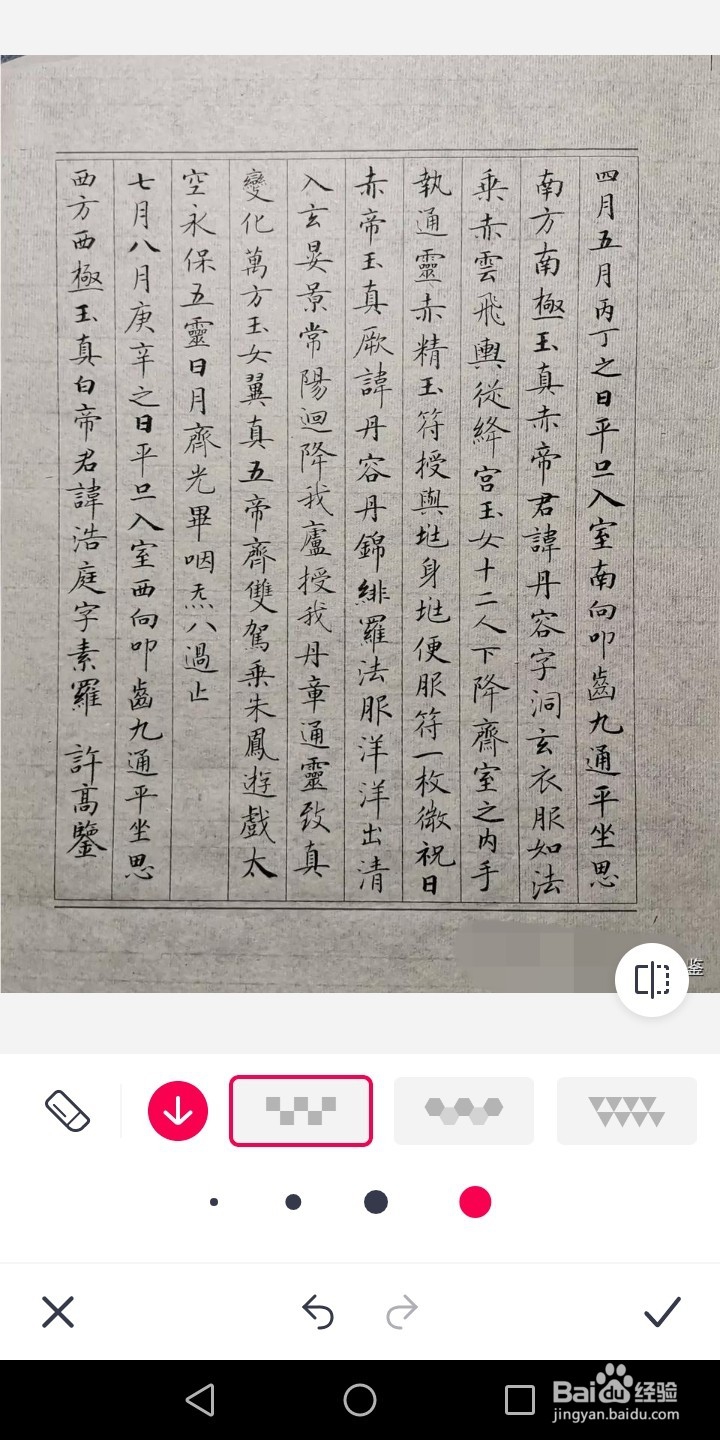 四月五月丙丁之日平旦入室南向叩齒九通平坐思
南方南極玉真赤帝君諱丹容字洞玄衣服如法
乘赤雲飛輿從絳宮玉女十二人下降齋室之內手
執通靈赤精玉符授與兆身兆便服符一枚微祝曰
赤帝玉真厥諱丹容丹錦緋羅法服洋洋出清
入玄晏景常陽迴降我廬授我丹章通靈致真
變化萬方玉女翼真五帝齊雙駕乘朱鳳遊戲太
空永保五靈日月齊光畢咽炁八過止
七月八月庚辛之日平旦入室西向叩齒九通平坐思
西方西極玉真白帝君諱浩庭字素羅 許高鑒
鉴
Baidu经验
jingyan.baidu.com